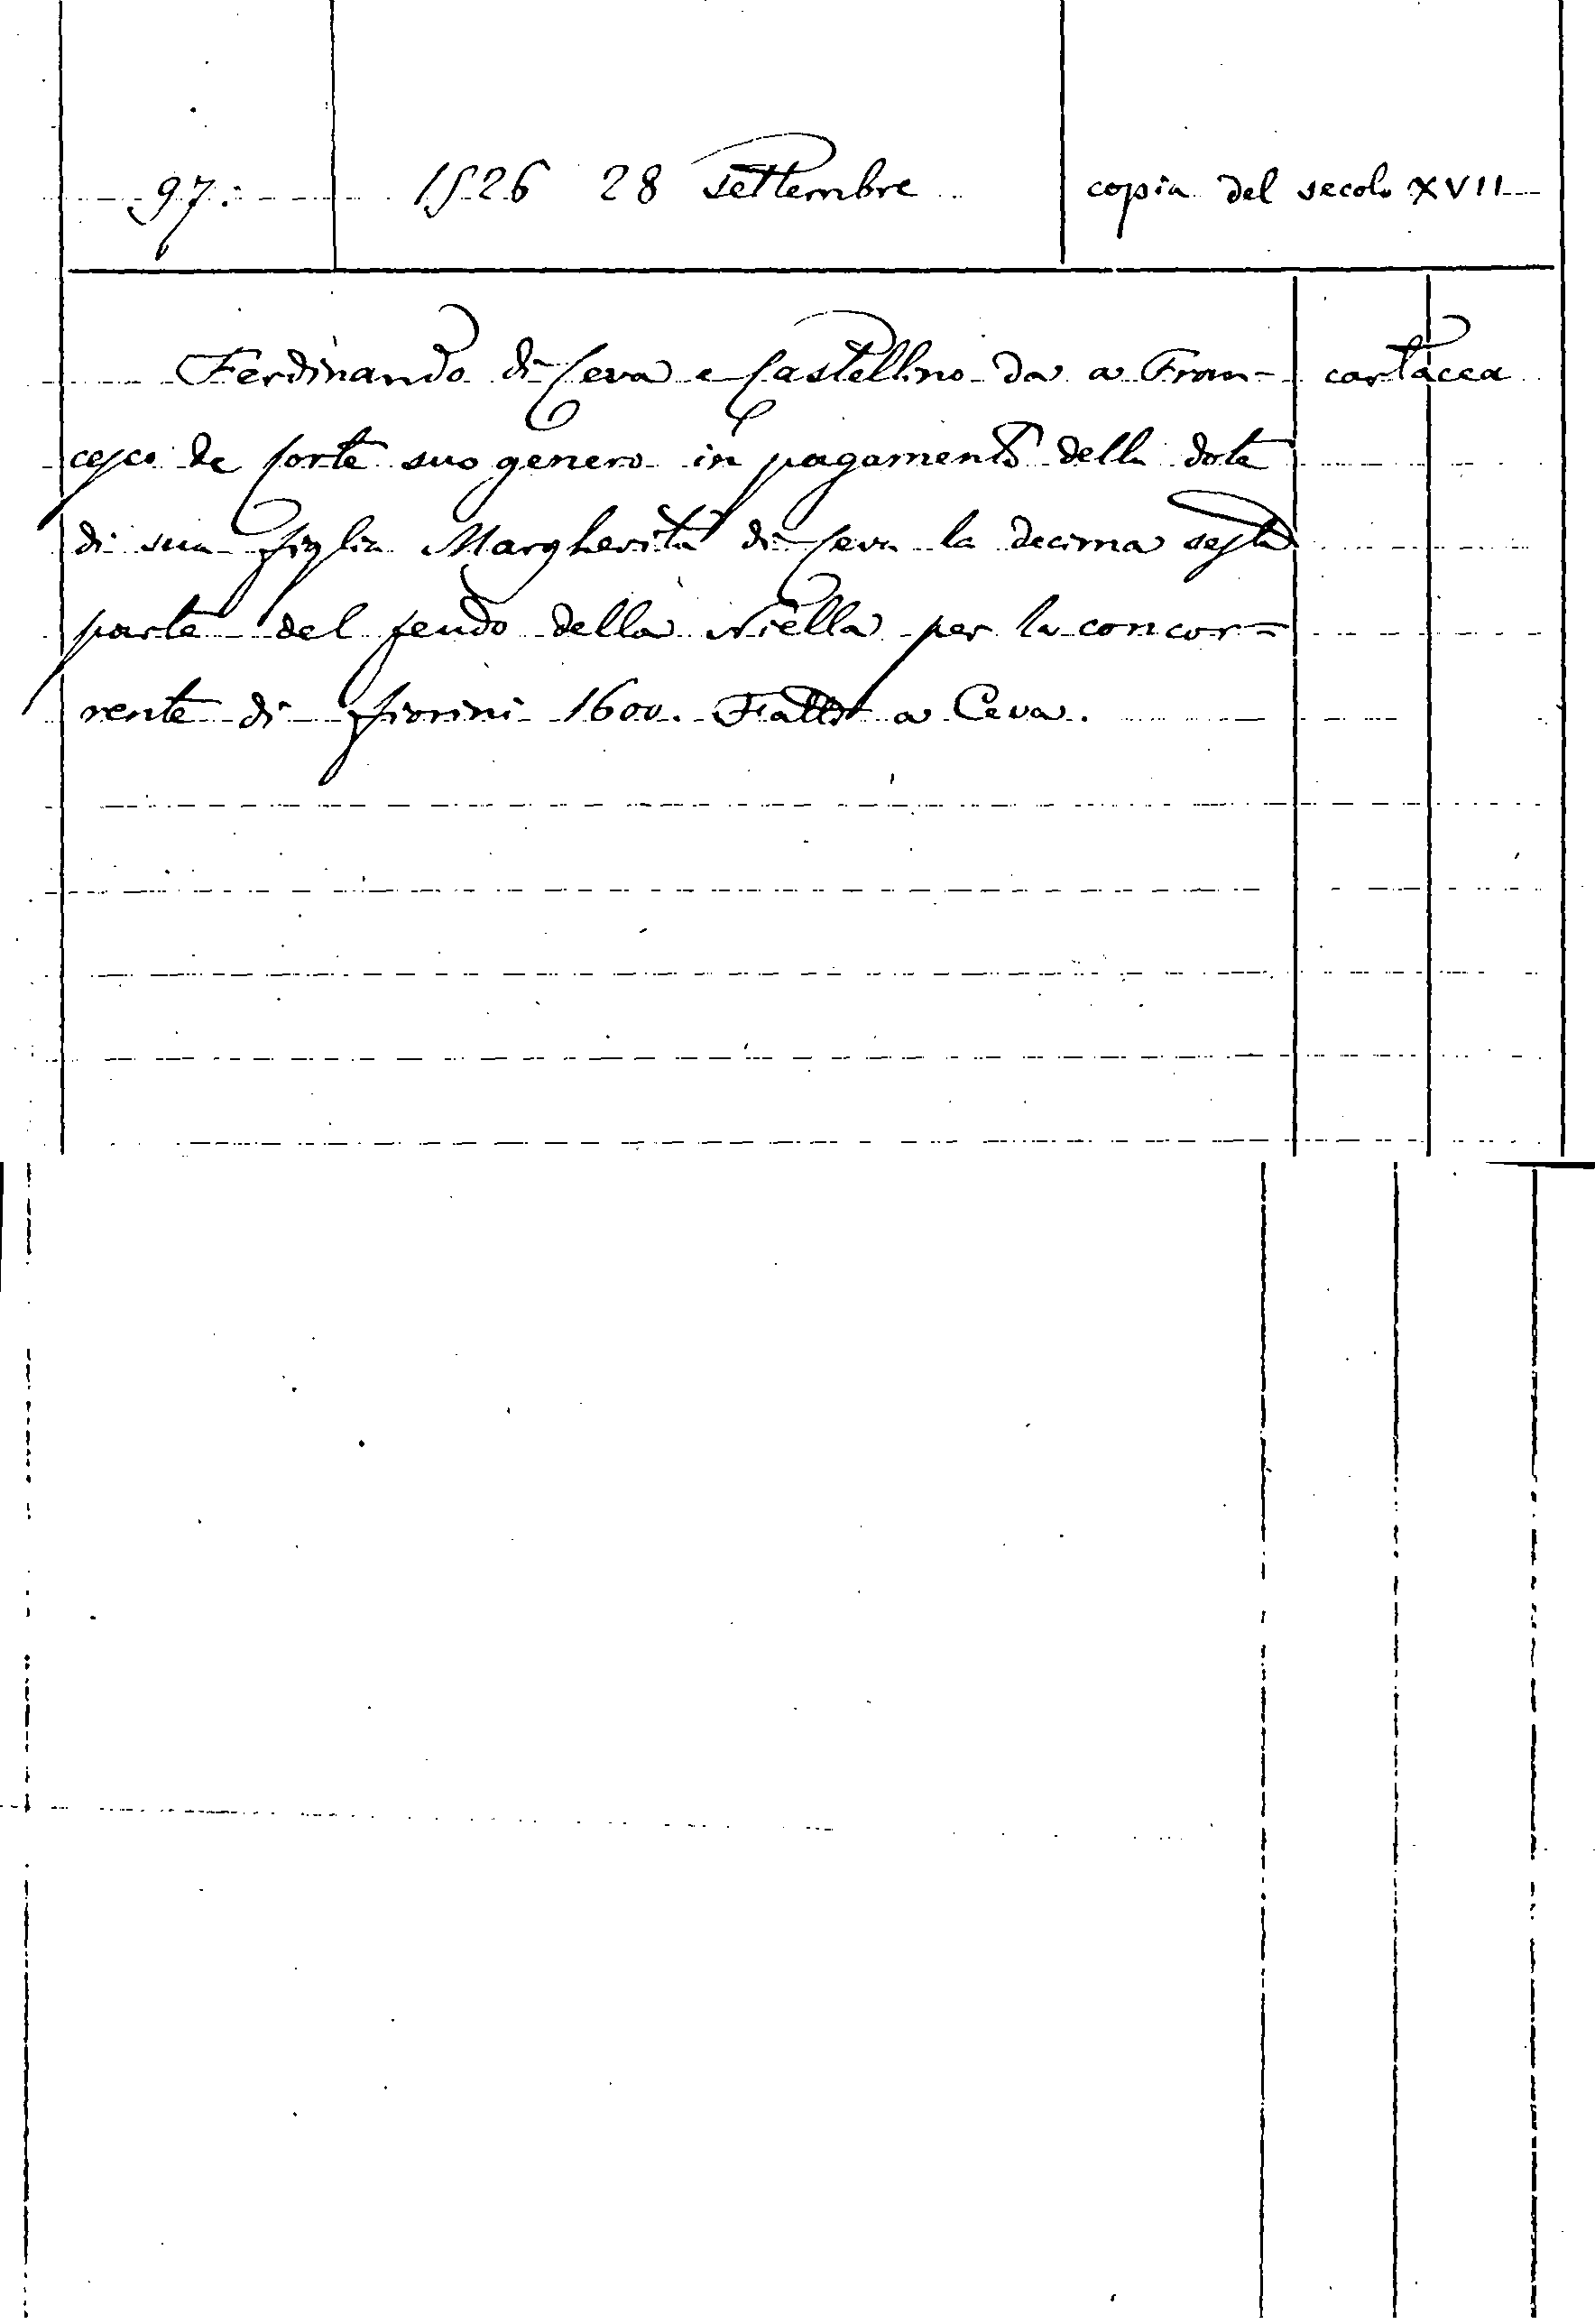 97. 1526 28 settembre copia del secolo XVII
Ferdinando di Ceva e Castellino da a Fran- cartacea
cesco de Corte suo genero in pagamento della dote
di sua figlia Margherita di Ceva la decima sesta
parte del feudo della Niella per la concor=
rente di fiorini 1600. Fatto a Ceva.